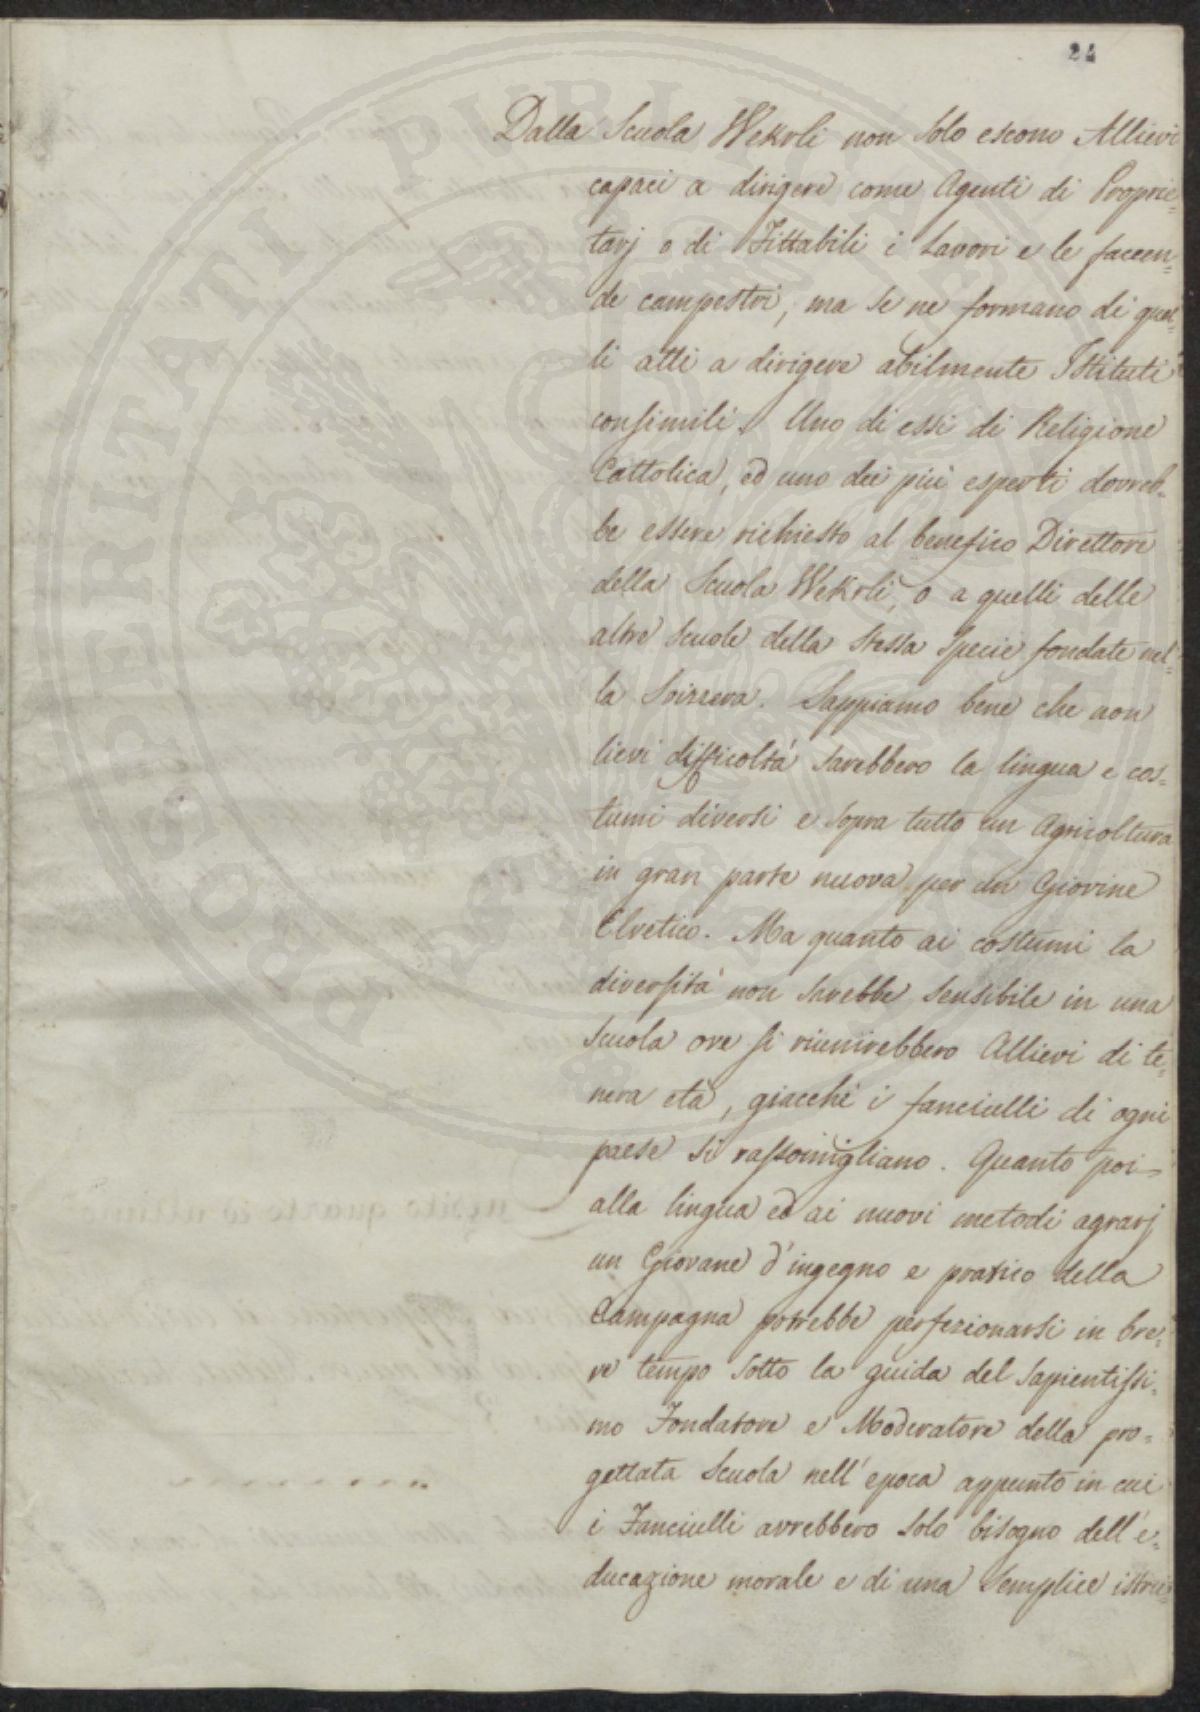 24
Dalla Scuola Wekrli non solo escono Allievi
capaci a dirigere come Agenti di Proprie=
tarj o di Fittabili i Lavori e le faccen=
de campestri, ma se ne formano di quel=
li atti a dirigere abilmente Istituti
consimili. Uno di essi di Religione
Cattolica, ed uno dei più esperti dovreb=
be essere richiesto al benefico Direttore
della Scuola Wekrli, o a quelli delle
altre scuole della stessa specie fondate nel=
la Svizzera. Sappiamo bene che non
lievi difficoltà sarebbero la lingua e cos=
tumi diversi e sopra tutto un Agricoltura
in gran parte nuova per un Giovine
Elvetico. Ma quanto ai costumi la
diversità non sarebbe sensibile in una
scuola ove si riunirebbero Allievi di te=
nera età, giacchè i fanciulli di ogni
paese si rassomigliano. Quanto poi
alla lingua ed ai nuovi metodi agrarj
un Giovane d'ingegno e pratico della
Campagna potrebbe perfezionarsi in bre=
ve tempo sotto la guida del sapientissi=
mo Fondatore e Moderatore della pro=
gettata Scuola nell'epoca appunto in cui
i Fanciulli avrebbero solo bisogno dell'e=
ducazione morale e di una semplice istru=
PROSPERITATI PUBLICAE